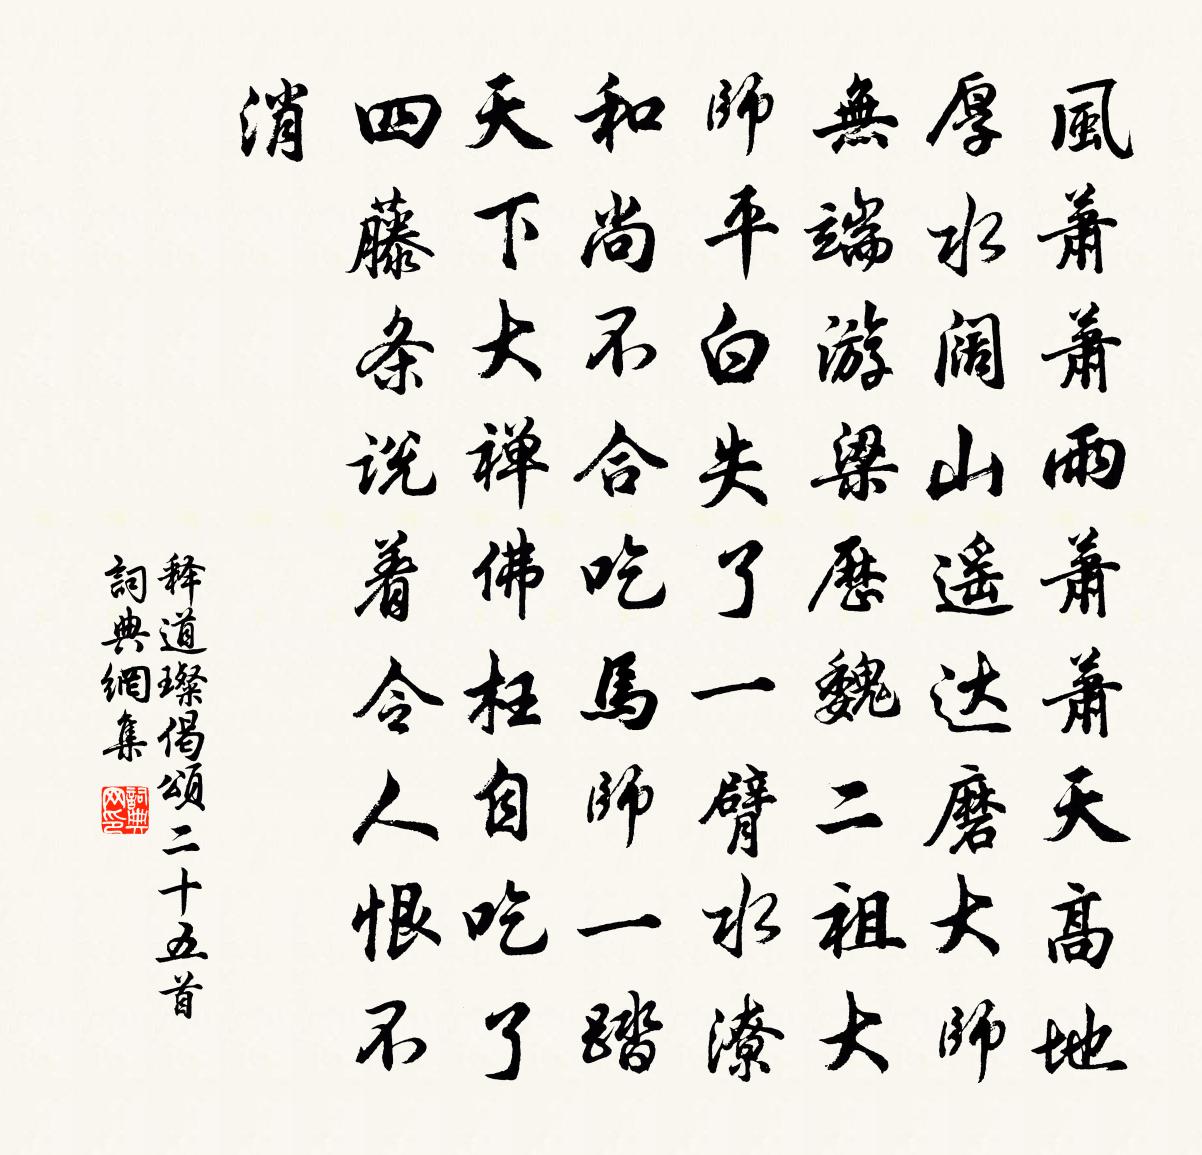 風蕭蕭雨蕭蕭天高地
厚水阔山遥达磨大師
無端游梁歷魏二祖大
師平白失了一臂水潦
和尚不合吃馬師一踏
天下大禅佛枉自吃了
四藤条说着令人恨不
消
释道璨偈頌二十五首
詞典網集
詞典网印